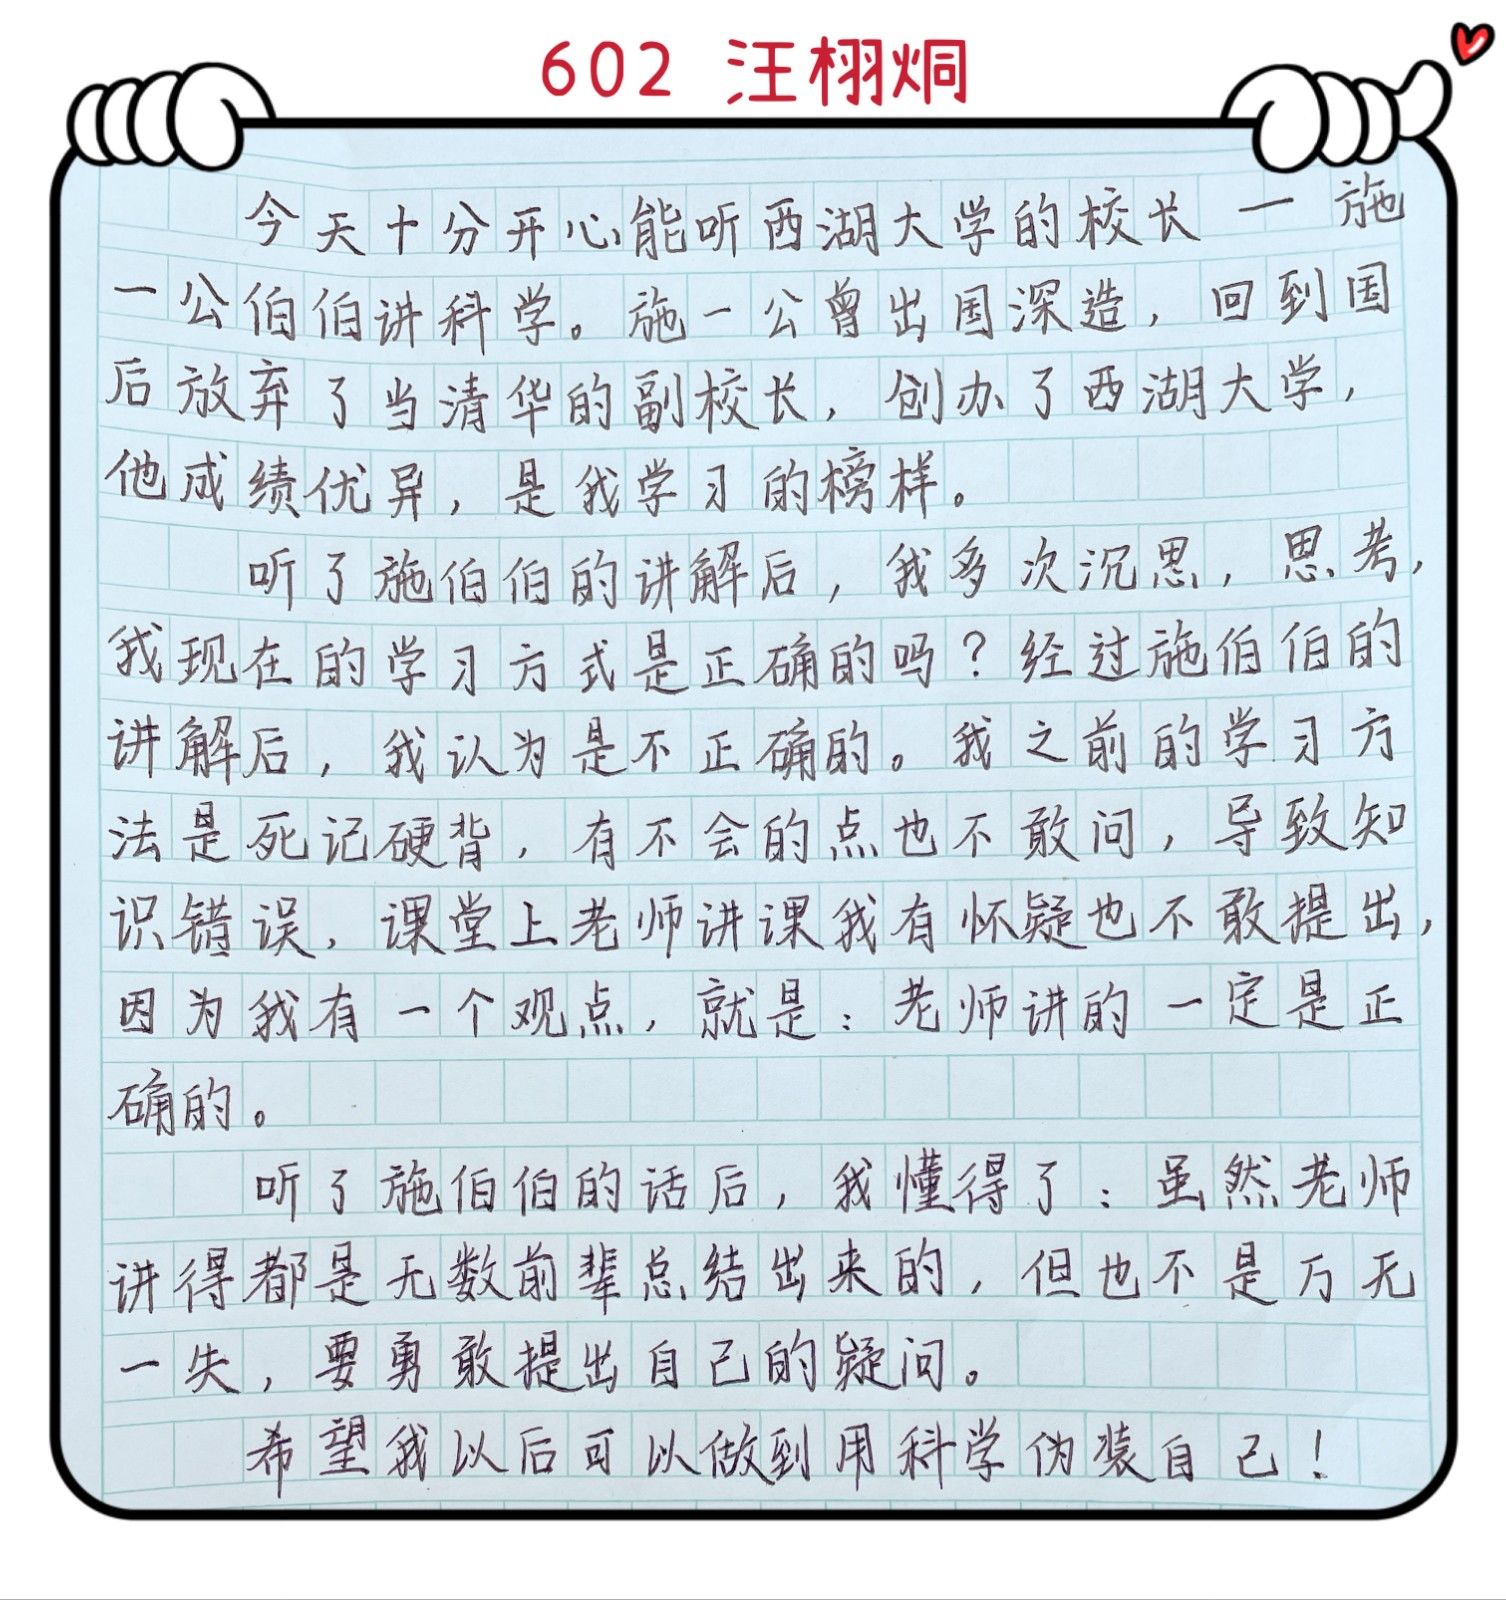 602 汪栩烔
今天十分开心能听西湖大学的校长一施
一公伯伯讲科学。施一公曾出国深造，回到国
后放弃了当清华的副校长，创办了西湖大学，
他成绩优异，是我学习的榜样。
听了施伯伯的讲解后，我多次沉思，思考，
我现在的学习方式是正确的吗？经过施伯伯的
讲解后，我认为是不正确的。我之前的学习方
法是死记硬背，有不会的点也不敢问，导致知
识错误，课堂上老师讲课我有怀疑也不敢提出，
因为我有一个观点，就是：老师讲的一定是正
确的。
听了施伯伯的话后，我懂得了：虽然老师
讲得都是无数前辈总结出来的，但也不是万无
一失，要勇敢提出自己的疑问。
希望我以后可以做到用科学伪装自己！